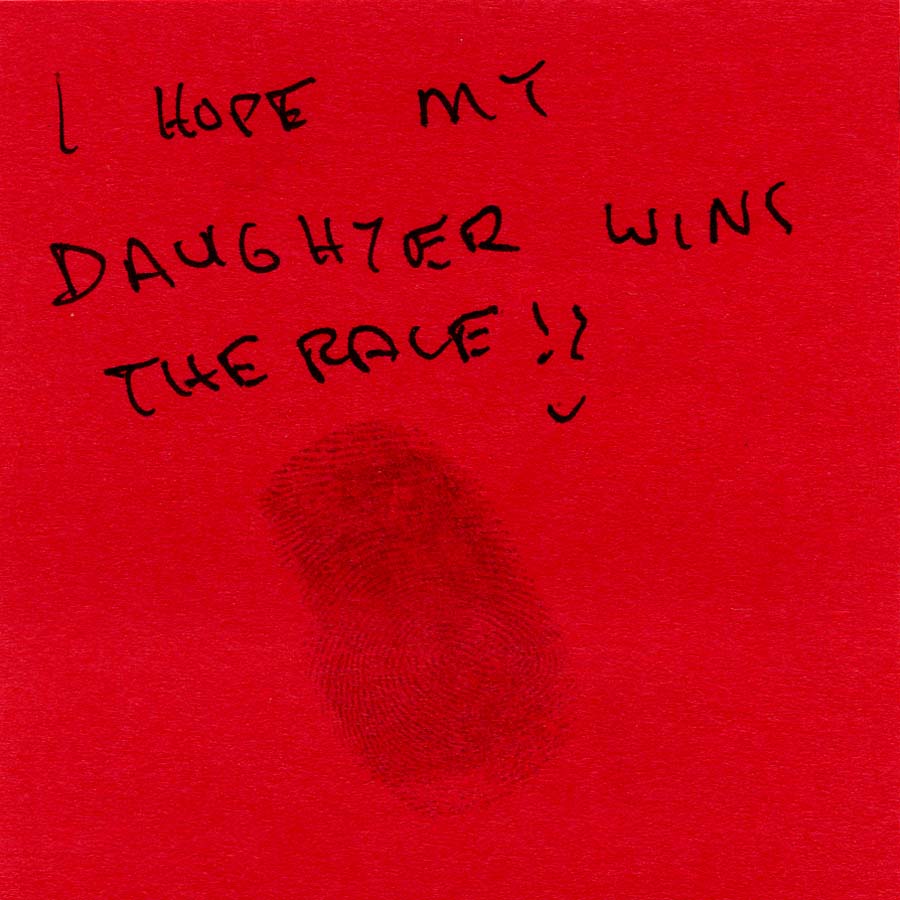 I HOPE MY
DAUGHTER WINS
THE RACE!!